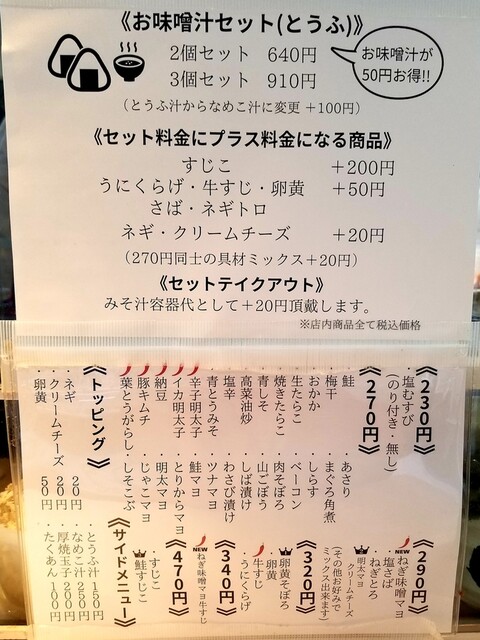 《お味噌汁セット(とうふ)》
2個セット 640円
3個セット 910円
お味噌汁が
50円お得!!
(とうふ汁からなめこ汁に変更 +100円)
《セット料金にプラス料金になる商品》
すじこ +200円
うにくらげ・牛すじ・卵黄 +50円
さば・ネギトロ
ネギ・クリームチーズ +20円
(270円同士の具材ミックス+20円)
《セットテイクアウト》
みそ汁容器代として+20円頂戴します。
※店内商品全て税込価格
《230円》
・塩むすび
(のり付き・無し)
《270円》
鮭
・梅干
・おかか
・生たらこ
・焼きたらこ
・青しそ
・高菜油炒
・塩辛
・青とうみそ
・辛子明太子
・イカ明太子
・納豆
・豚キムチ
・葉とうがらし
・あさり
・まぐろ角煮
・しらす
・ベーコン
・肉そぼろ
・山ごぼう
・しば漬け
・わさび漬け
・ツナマヨ
・鮭マヨ
・とりからマヨ
・明太マヨ
・じゃこマヨ
・しそこぶ
《トッピング》
・ネギ 20円
・クリームチーズ 20円
・卵黄 50円
《290円》
NEW
ねぎ味噌マヨ
・塩さば
・ねぎとろ
2
明太マヨ
クリームチーズ
(その他お好みで
ミックス出来ます)
《320円》
卵黄そぼろ
・卵黄
・牛すじ
・うにくらげ
《340円》
NEW
ねぎ味噌マヨ牛すじ
《470円》
・すじこ
鮭すじこ
《サイドメニュー》
・とうふ汁 150円
・なめこ汁 250円
・厚焼玉子 200円
・たくあん 100円